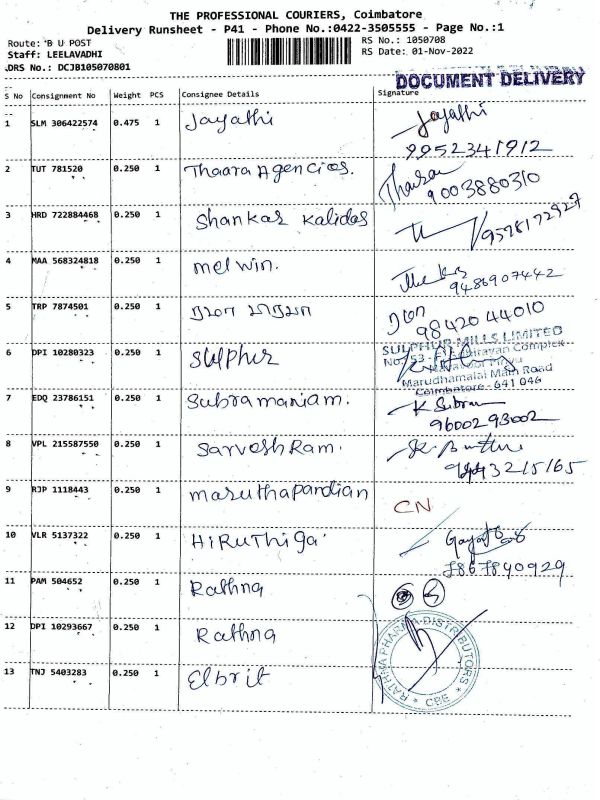 THE PROFESSIONAL COURIERS, Coimbatore
Delivery Runsheet - P41 - Phone No.:0422-3505555 - Page No.:1
Route: B U POST
RS No.: 1050708
Staff: LEELAVADHI
RS Date: 01-Nov-2022
DRS No.: DCJB105070801
DOCUMENT DELIVERY
S No Consignment No Weight PCS Consignee Details Signature
1 SLM 306422574 0.475 1 Jayathi Jayathi
9952341912
2 TUT 781520 0.250 1 Thaara Agencies.
9003880310
3 HRD 722884468 0.250 1 Shankar Kalidas
9578172927
4 MAA 568324818 0.250 1 melwin.
9486907442
5 TRP 7874501 0.250 1
98420 44010
6 DPI 10280323 0.250 1 Sulphur
SULPHUR MILLS LIMITED
No. 53 - Complex
Marudhamalai Main Road
Coimbatore - 641 046
7 EDQ 23786151 0.250 1 Subramaniam. K Subram
9600293002
8 VPL 215587550 0.250 1 Sarvesh Ram.
9 RJP 1118443 0.250 1 maruthapandian CN
10 VLR 5137322 0.250 1 Hiruthiga
7867840929
11 PAM 504652 0.250 1 Rathna
12 DPI 10293667 0.250 1 Rathna
RATHNA PHARMA DISTRIBUTORS
CBE
13 TNJ 5403283 0.250 1 Elbrit